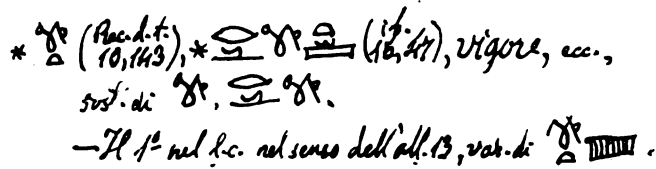 * (Rec. d. t. 10,143), * (id. 16,47), vigore, ecc.,
sost. di , .
— Il 1º nel l.c. nel senso dell'all. 13, var. di .